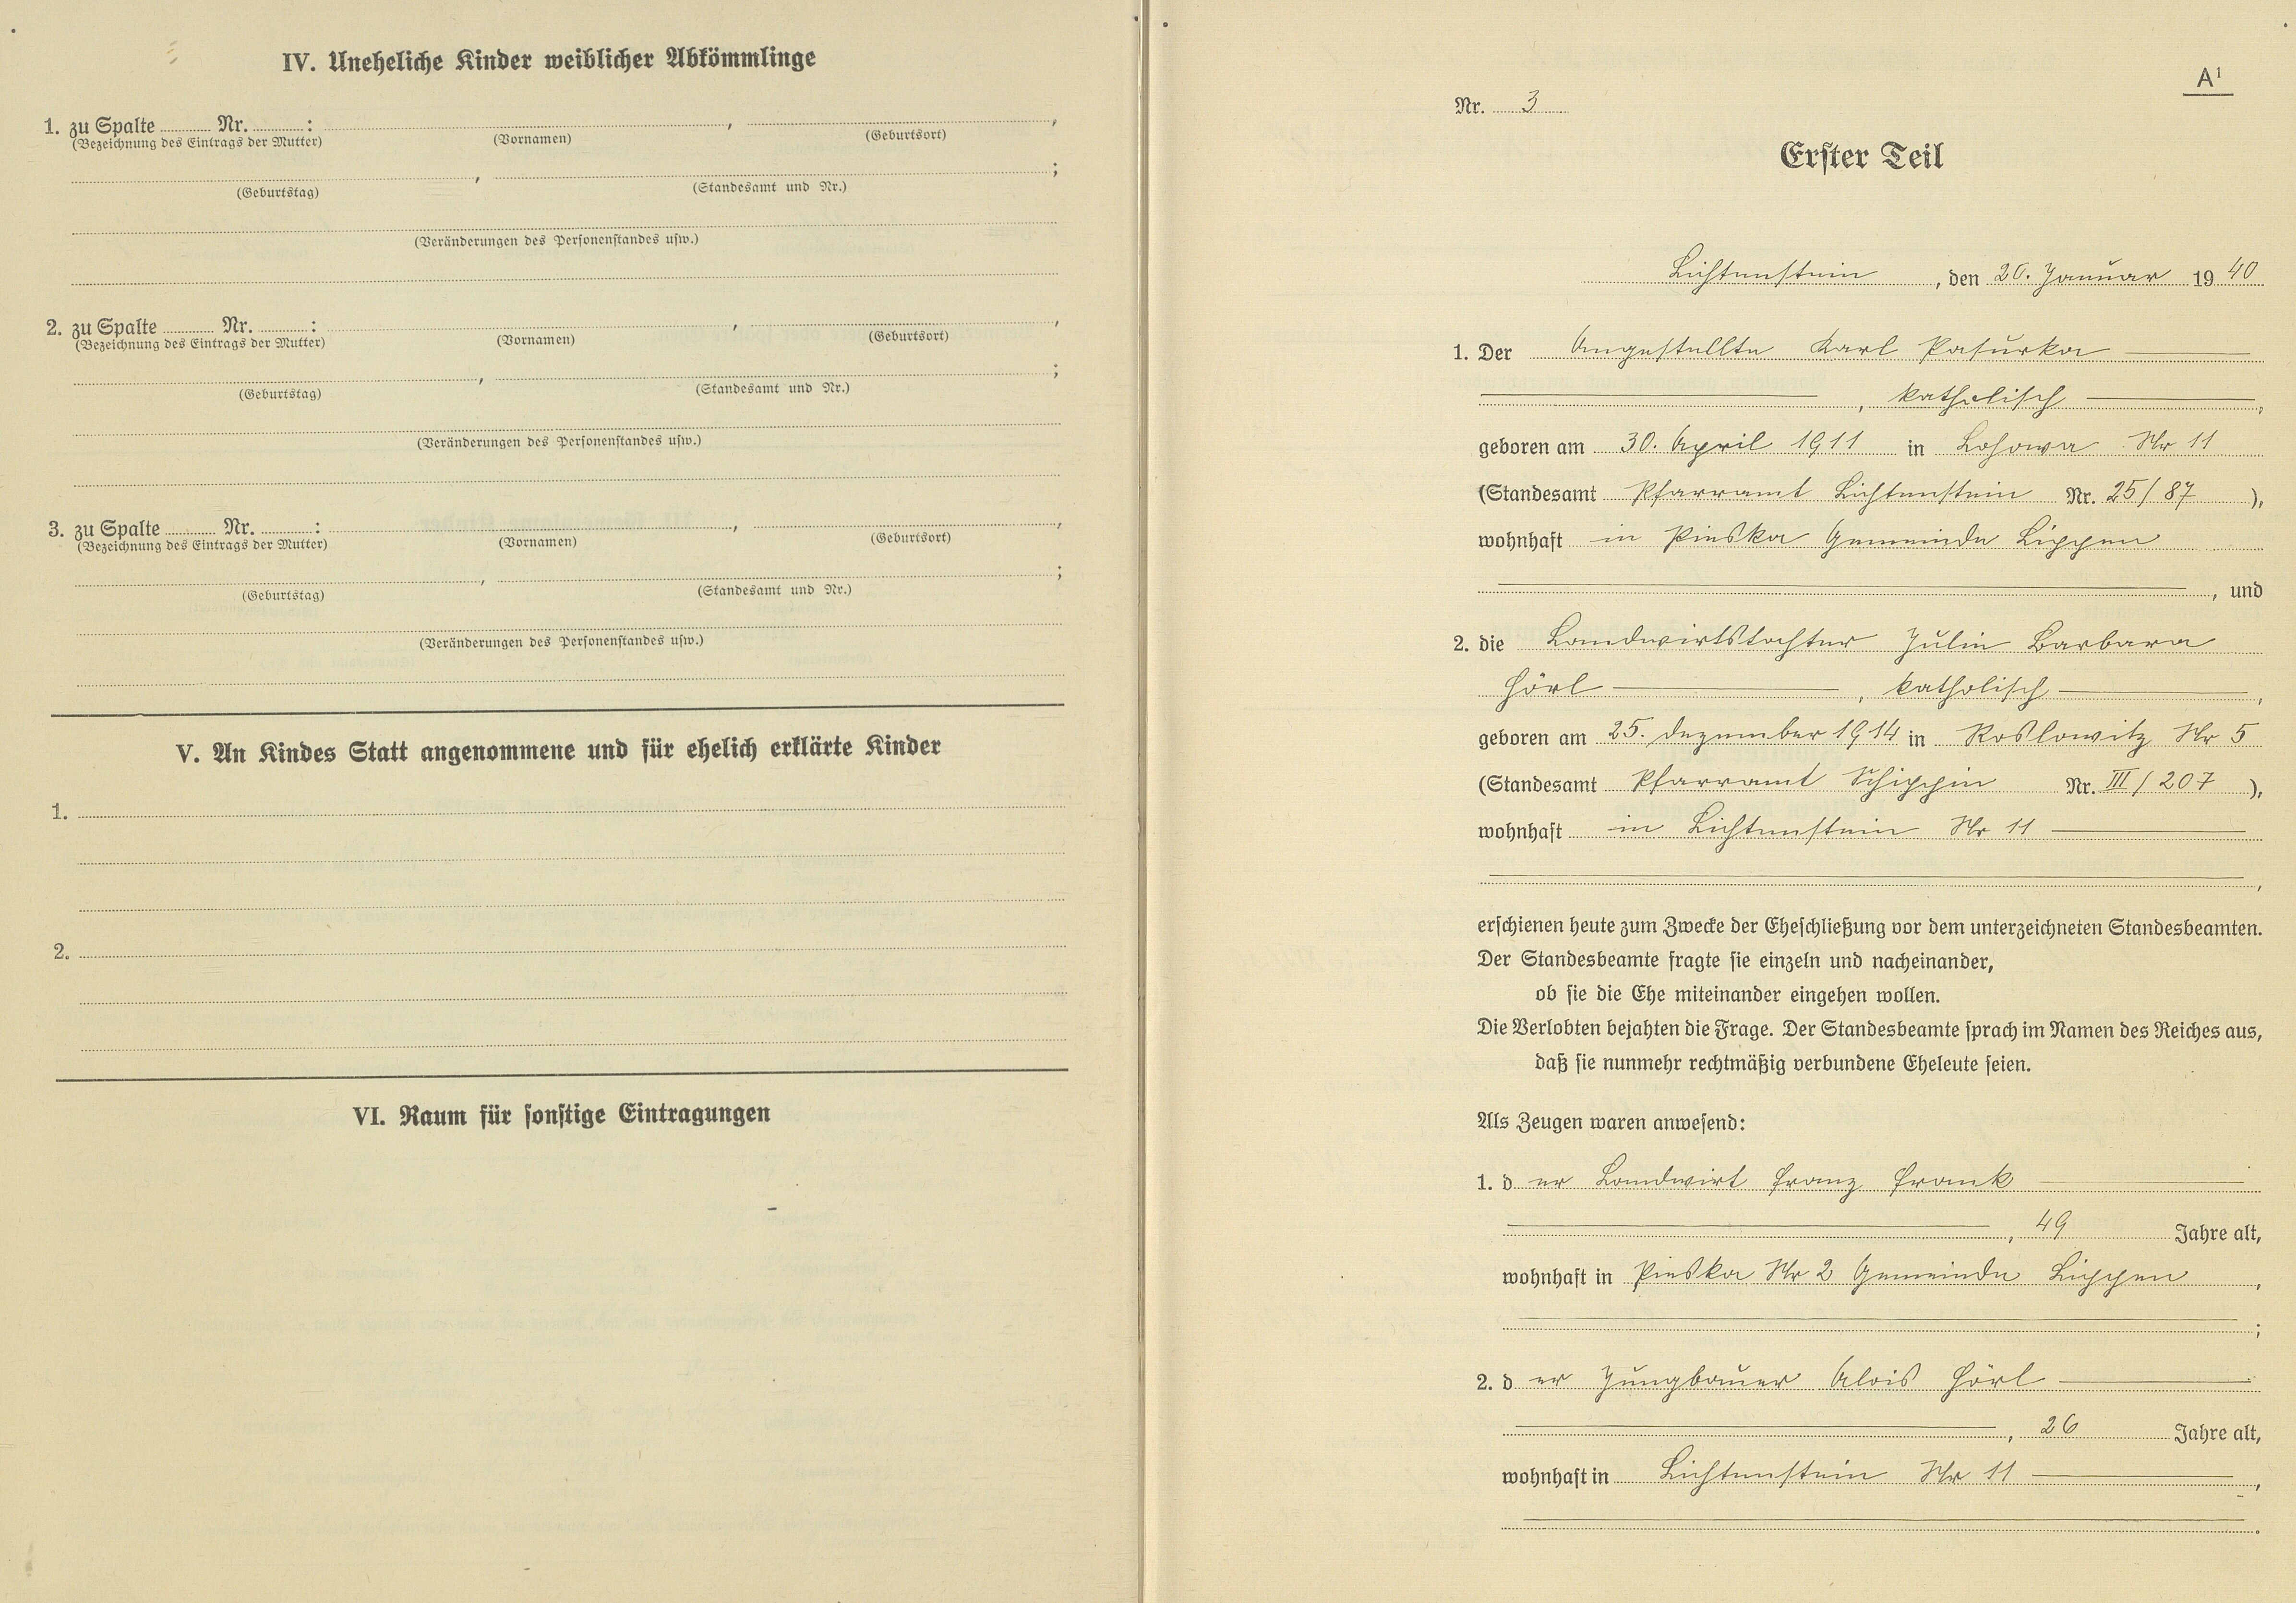 IV. Uneheliche Kinder weiblicher Abkömmlinge
1. zu Spalte Nr. : , ,
(Bezeichnung des Eintrags der Mutter) (Vornamen) (Geburtsort)
, ;
(Geburtstag) (Standesamt und Nr.)
(Veränderungen des Personenstandes usw.)
2. zu Spalte Nr. : , ,
(Bezeichnung des Eintrags der Mutter) (Vornamen) (Geburtsort)
, ;
(Geburtstag) (Standesamt und Nr.)
(Veränderungen des Personenstandes usw.)
3. zu Spalte Nr. : , ,
(Bezeichnung des Eintrags der Mutter) (Vornamen) (Geburtsort)
, ;
(Geburtstag) (Standesamt und Nr.)
(Veränderungen des Personenstandes usw.)
V. An Kindes Statt angenommene und für ehelich erklärte Kinder
1.
2.
VI. Raum für sonstige Eintragungen
A1
Nr. 3
Erster Teil
Lichtenstein, den 20. Januar 1940
1. Der Angestellte Karl Pasurka
, katholisch,
geboren am 30. April 1911 in Losowa Nr 11
(Standesamt Pfarramt Lichtenstein Nr. 25/87),
wohnhaft in Pieska Gemeinde Lippen
, und
2. die Landwirtstochter Julie Barbara
Hörl, katholisch,
geboren am 25. Dezember 1914 in Koslowitz Nr 5
(Standesamt Pfarramt Schippin Nr. III/207),
wohnhaft in Lichtenstein Nr 11
,
erschienen heute zum Zwecke der Eheschließung vor dem unterzeichneten Standesbeamten.
Der Standesbeamte fragte sie einzeln und nacheinander,
ob sie die Ehe miteinander eingehen wollen.
Die Verlobten bejahten die Frage. Der Standesbeamte sprach im Namen des Reiches aus,
daß sie nunmehr rechtmäßig verbundene Eheleute seien.
Als Zeugen waren anwesend:
1. der Landwirt Franz Frank
, 49 Jahre alt,
wohnhaft in Pieska Nr 2 Gemeinde Lippen,
;
2. der Jungbauer Alois Hörl
, 26 Jahre alt,
wohnhaft in Lichtenstein Nr 11,
.